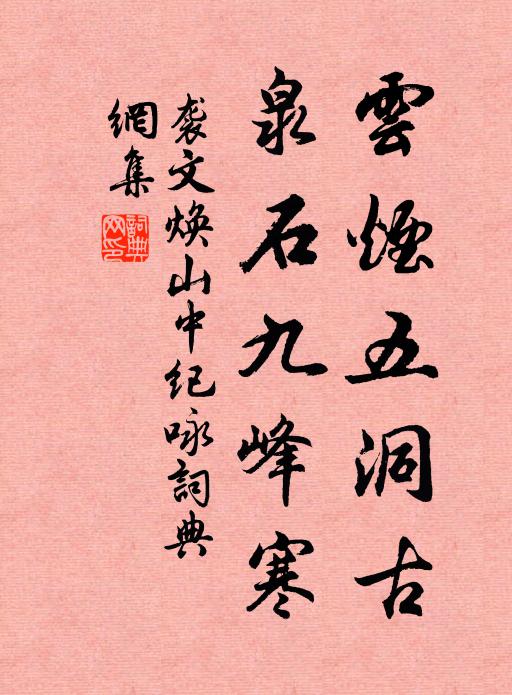 雲煙五洞古
泉石九峰寒
袭文焕山中紀咏詞典
網集
詞典網印